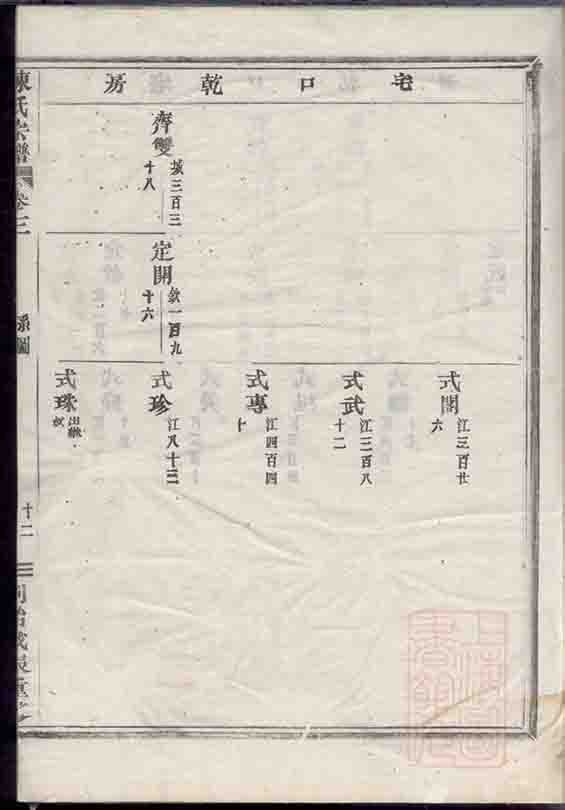 宅口乾房
齊雙
城三百三
十八
定開
欽一百九
十六
式閣
江三百廿
六
式武
江三百八
十二
式專
江四百四
十
式珍
江八十三
式珠
出繼
叔
陳氏宗譜
卷三
系圖
十二
同治
重
上海圖書館藏